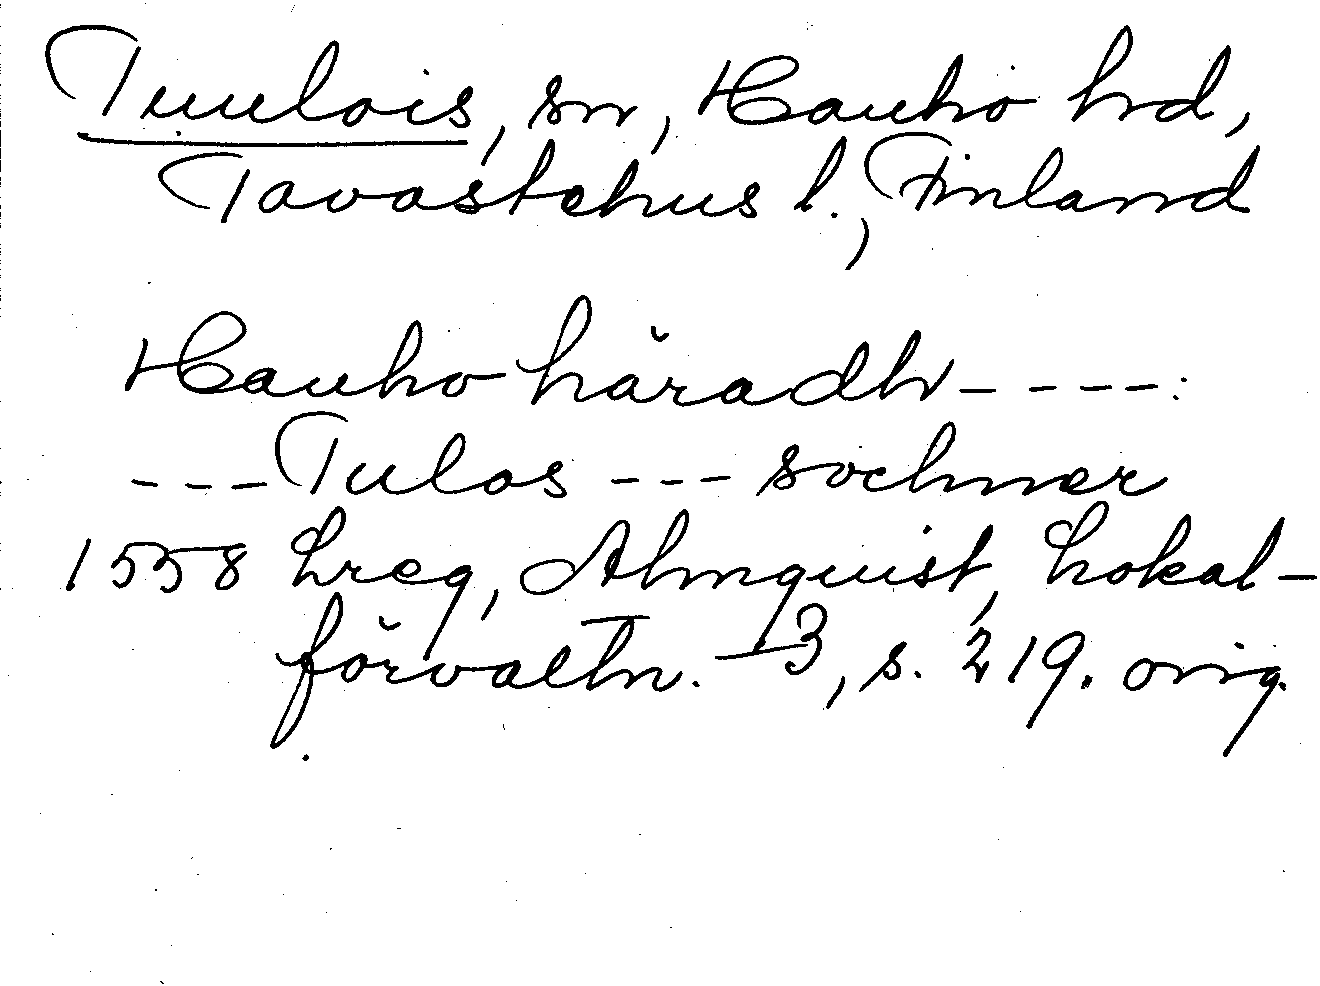 Tuulois, sn, Hauho hrd,
Tavastehus l., Finland
Hauho häradh - - - - :
- - - Tulos - - - sochner
1558 Lreg, Almquist, Lokal-
förvaltn. I3, s. 219. orig.